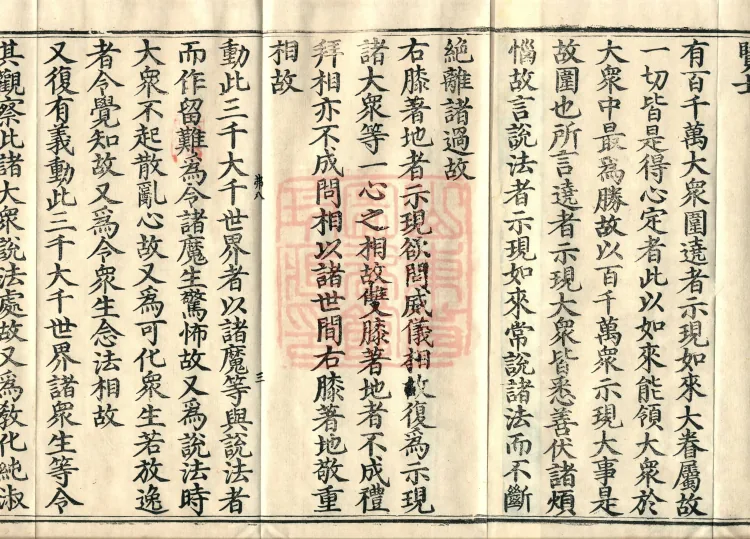 有百千萬大衆圍遶者示現如來大眷屬故
一切皆是得心定者此以如來能領大衆於
大衆中最爲勝故以百千萬衆示現大事是
故圍也所言遶者示現大衆皆悉善伏諸煩
惱故言說法者示現如來常說諸法而不斷
絶離諸過故
右膝著地者示現欲問威儀相故復爲示現
諸大衆等一心之相故雙膝著地者不成禮
拜相亦不成問相以諸世間右膝著地敬重
相故
弟八 三
動此三千大千世界者以諸魔等與說法者
而作留難爲令諸魔生驚怖故又爲說法時
大衆不起散亂心故又爲可化衆生若放逸
者令覺知故又爲令衆生念法相故
又復有義動此三千大千世界諸衆生等令
其觀察此諸大衆說法處故又爲敎化純淑